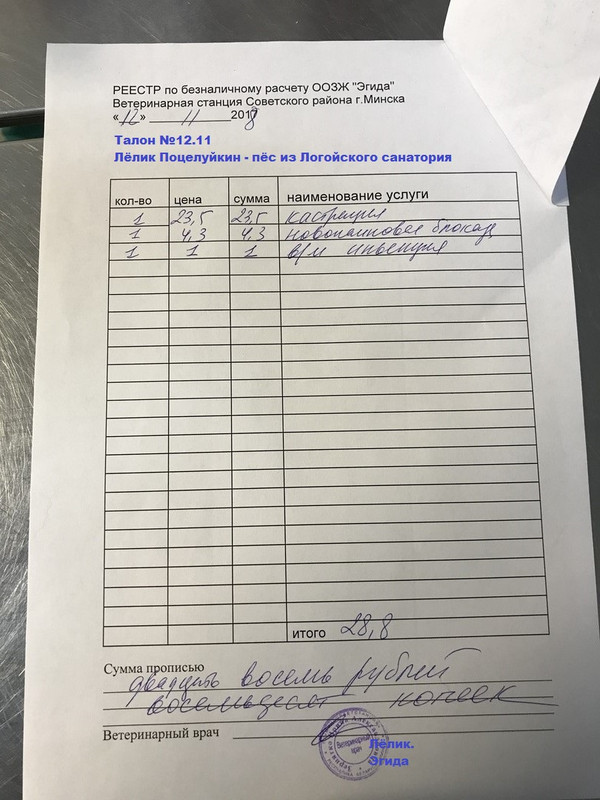 РЕЕСТР по безналичному расчету ООЗЖ "Эгида"
Ветеринарная станция Советского района г.Минска
«12» 11 2018
Талон №12.11
Лёлик Поцелуйкин - пёс из Логойского санатория
кол-во цена сумма наименование услуги
1 23,5 23,5 кастрация
1 4,3 4,3 новокаиновая блокада
1 1 1 в/м инъекция
итого 28,8
Сумма прописью
двадцать восемь рублей
восемьдесят копеек
Ветеринарный врач
Ветеринарный
врач
Лёлик.
Эгида